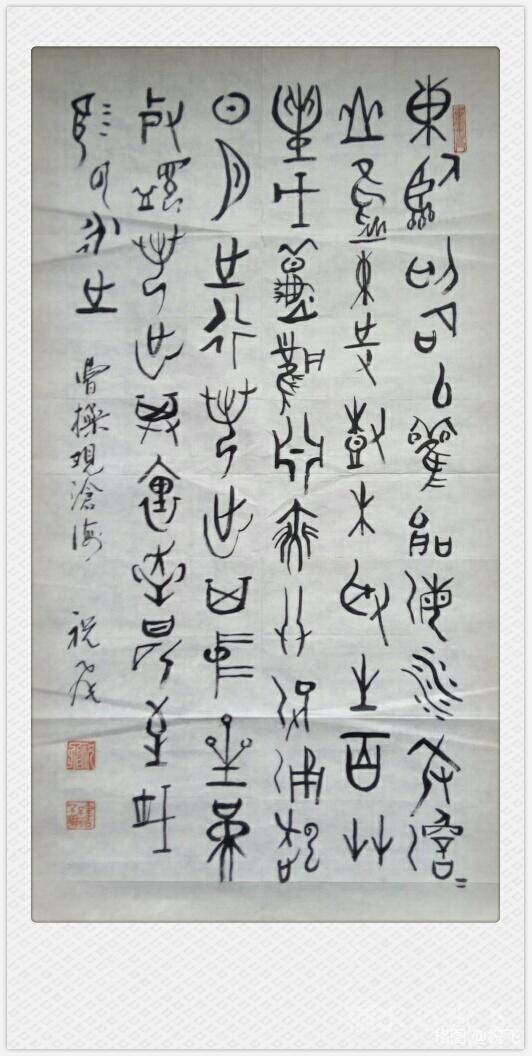 東臨碣石以觀滄海水何澹=
山島竦峙樹木叢生百草
豐茂秋風蕭瑟洪波湧起
日月之行若出其中星漢
燦爛若出其裏幸甚至哉
歌以詠志
曹操观滄海 祝